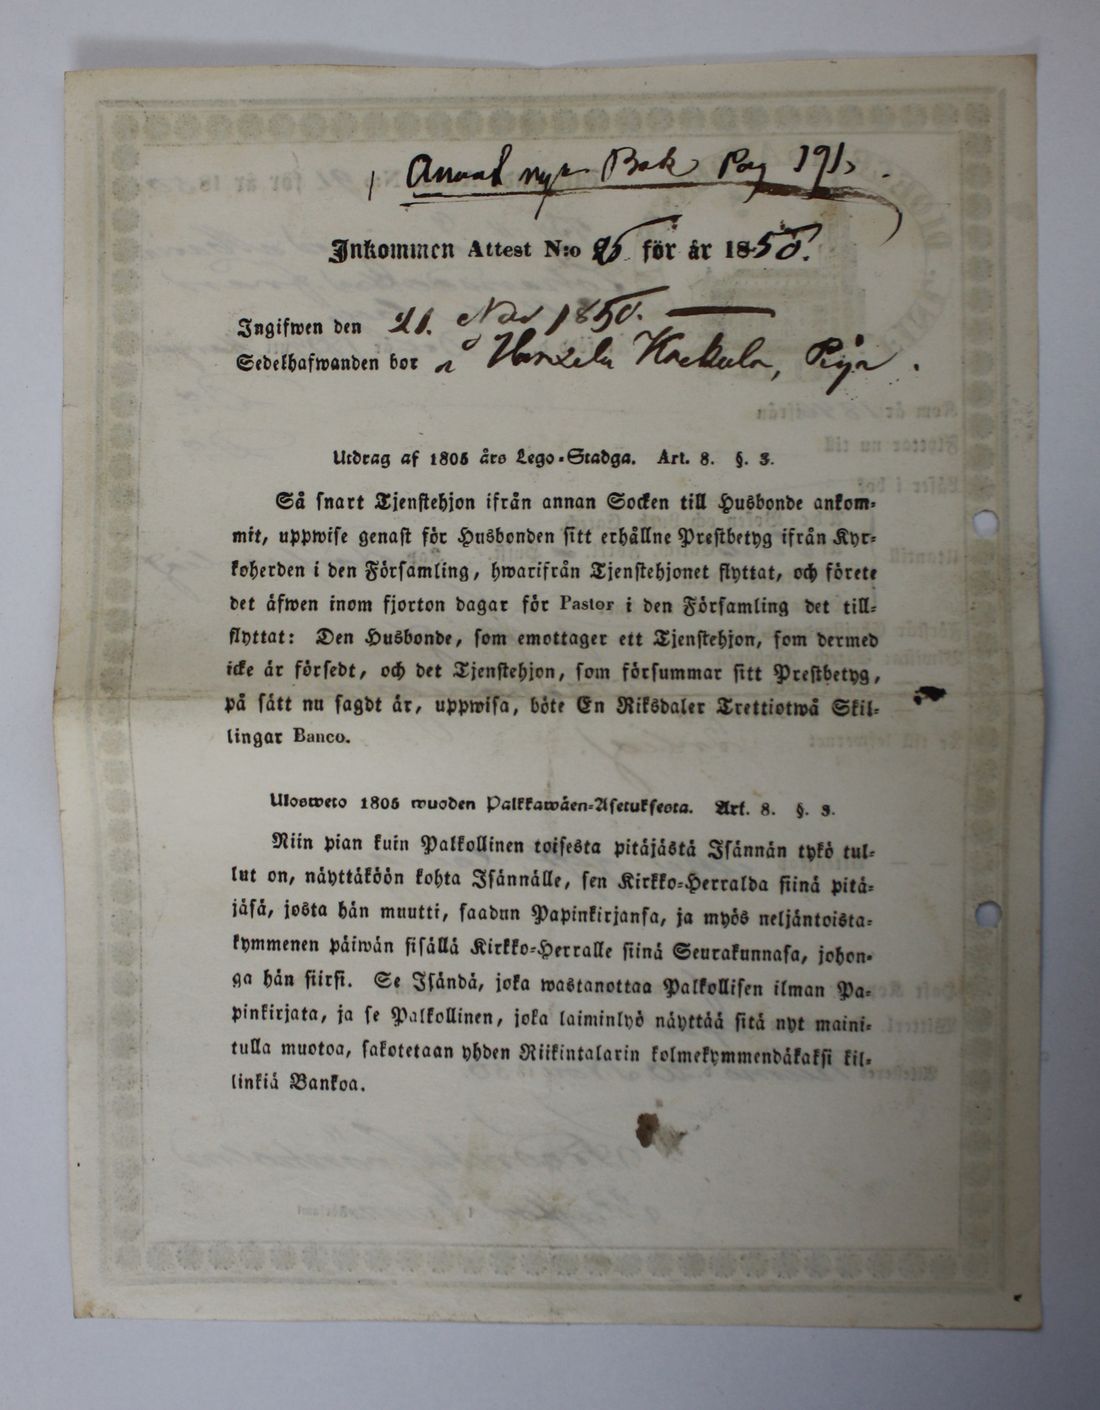 nya Bok Pag 191
Inkommen Attest N:o 25 för år 1850.
Ingifwen den 21. Nov 1850.
Sedelhafwanden bor i
Utdrag af 1805 års Lego-Stadga. Art. 8. §. 3.
Så snart Tjenstehjon ifrån annan Socken till Husbonde ankom-
mit, uppwise genast för Husbonden sitt erhållne Prestbetyg ifrån Kyr-
koherden i den Församling, hwarifrån Tjenstehjonet flyttat, och förete
det äfwen inom fjorton dagar för Pastor i den Församling det till-
flyttat: Den Husbonde, som emottager ett Tjenstehjon, som dermed
icke är försedt, och det Tjenstehjon, som försummar sitt Prestbetyg,
på sätt nu sagdt är, uppwisa, böte En Riksdaler Trettiotwå Skil-
lingar Banco.
Ulosweto 1805 wuoden Palkkawäen-Asetuksesta. Art. 8. §. 3.
Niin pian kuin Palkollinen toisesta pitäjästä Isännän tykö tul-
lut on, näyttäköön kohta Isännälle, sen Kirkko-Herralda siinä pitä-
jäsä, josta hän muutti, saadun Papinkirjansa, ja myös neljäntoista-
kymmenen päiwän sisällä Kirkko-Herralle siinä Seurakunnasa, johon-
ga hän siirsi. Se Isändä, joka wastanottaa Palkollisen ilman Pa-
pinkirjata, ja se Palkollinen, joka laiminlyö näyttää sitä nyt maini-
tulla muotoa, sakotetaan yhden Riikintalarin kolmekymmendäkaksi kil-
linkiä Bankoa.